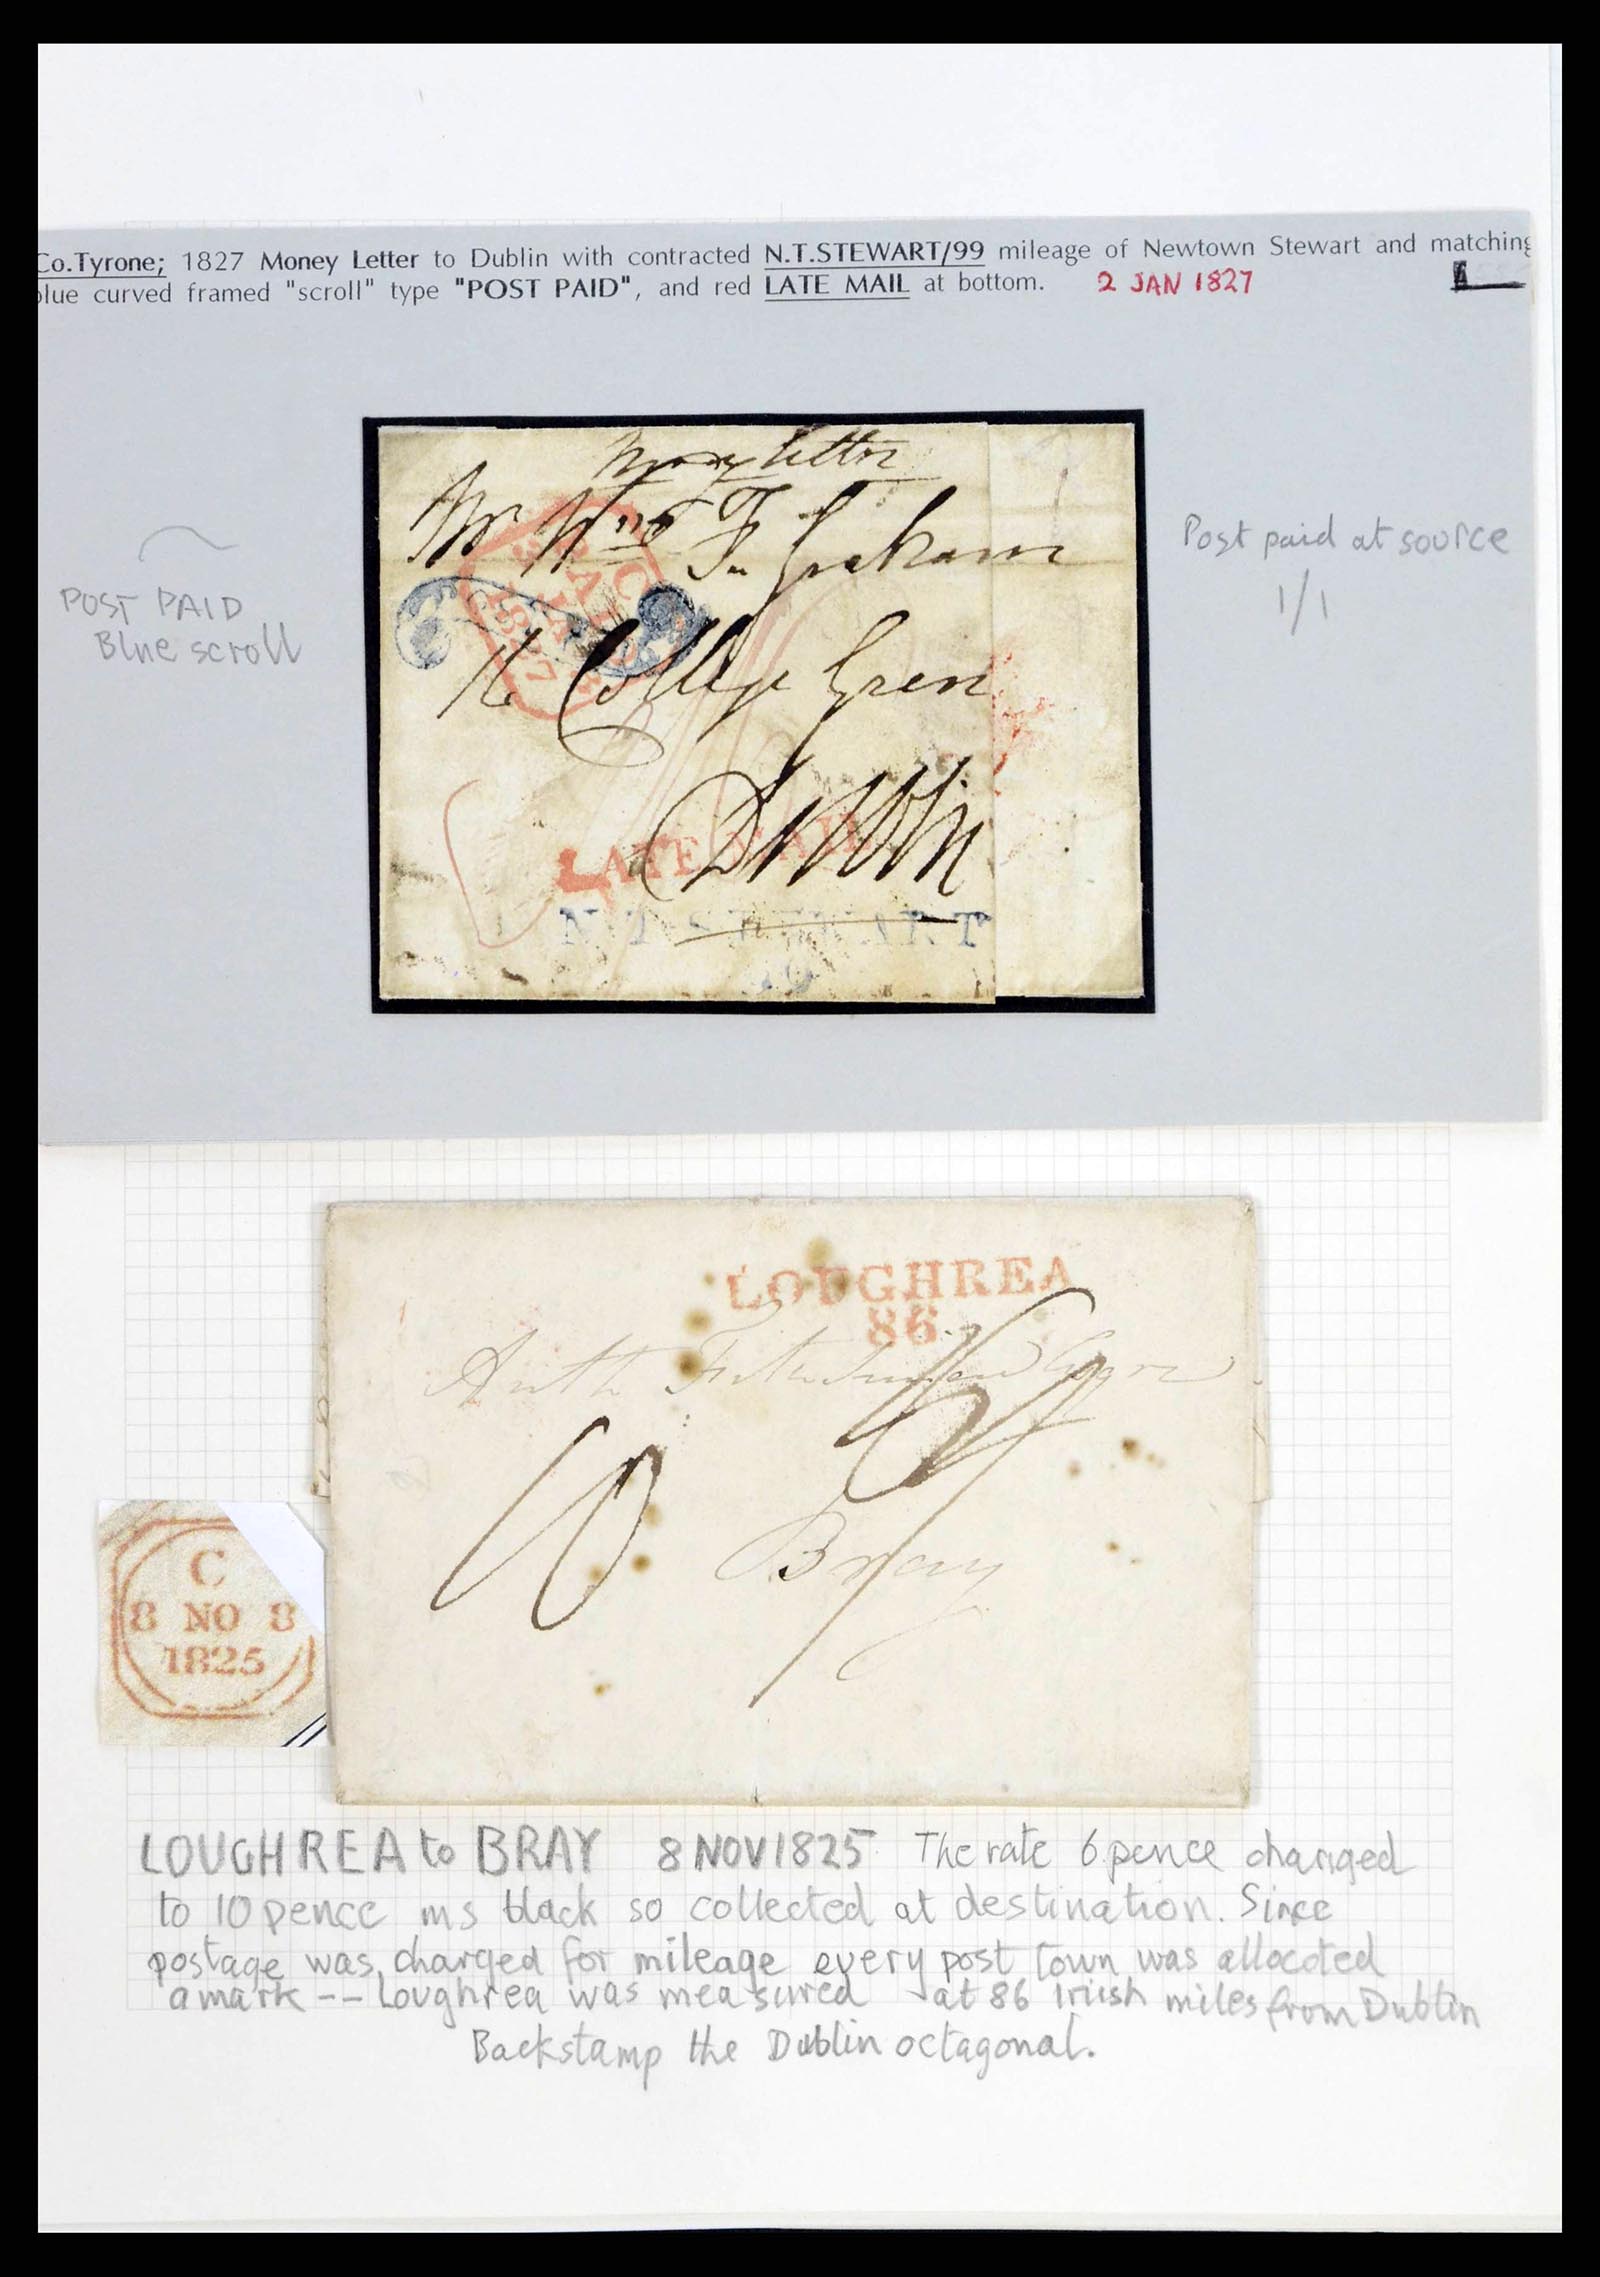 Co.Tyrone; 1827 Money Letter to Dublin with contracted N.T.STEWART/99 mileage of Newtown Stewart and matching
blue curved framed "scroll" type "POST PAID", and red LATE MAIL at bottom. 2 JAN 1827
Money Letter
Mr Wm Fr Graham
College Green
Dublin
LATE MAIL
N.T.STEWART
POST PAID
Blue scroll
Post paid at source
1/1
LOUGHREA
86
Bray
10
C
8 NO 8
1825
LOUGHREA to BRAY 8 NOV 1825 The rate 6 pence changed
to 10 pence ms black so collected at destination. Since
postage was charged for mileage every post town was allocated
a mark -- Loughrea was measured at 86 Irish miles from Dublin
Backstamp the Dublin octagonal.